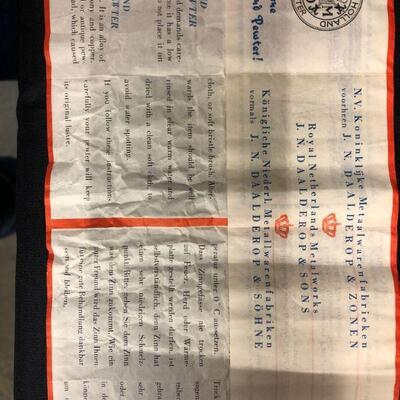 HOLLAND
N.V. Koninklijke Metaalwarenfabrieken
voorheen J. N. DAALDEROP & ZONEN
Royal Netherlands Metalworks
J. N. DAALDEROP & SONS
Königliche Niederl. Metallwarenfabriken
vormals J. N. DAALDEROP & SÖHNE
me
Pewter!
ND
WTER
d demands care-
e it has a low
o not place it on
ND
EWTER
. It is an alloy of
ony and copper.
or antique
nd, which caused
cloth, or soft bristle brush. After-
wards the item should be well
rinsed in clear warm water and
dried with a clean soft cloth to
avoid water spotting.
If you follow these instructions
carefully your pewter will keep
its original lustre.
peratur unter 0° C. aussetzen.
Dass Zinngefässe nie trocken
auf Feuer, Herd oder Wärme-
platte gestellt werden dürfen, ist
selbstverständlich, denn Zinn hat
einen sehr niedrigen Schmelz-
punkt. Bitte, geben Sie dem Zinn
was dem Zinn zukommt. Wie ein
guter Freund wird das Zinn Ihnen
für eine gute Behandlung dankbar
sein und bleiben.
Trock
sogen
gebra
sehr
oder
in de
Linne
um n